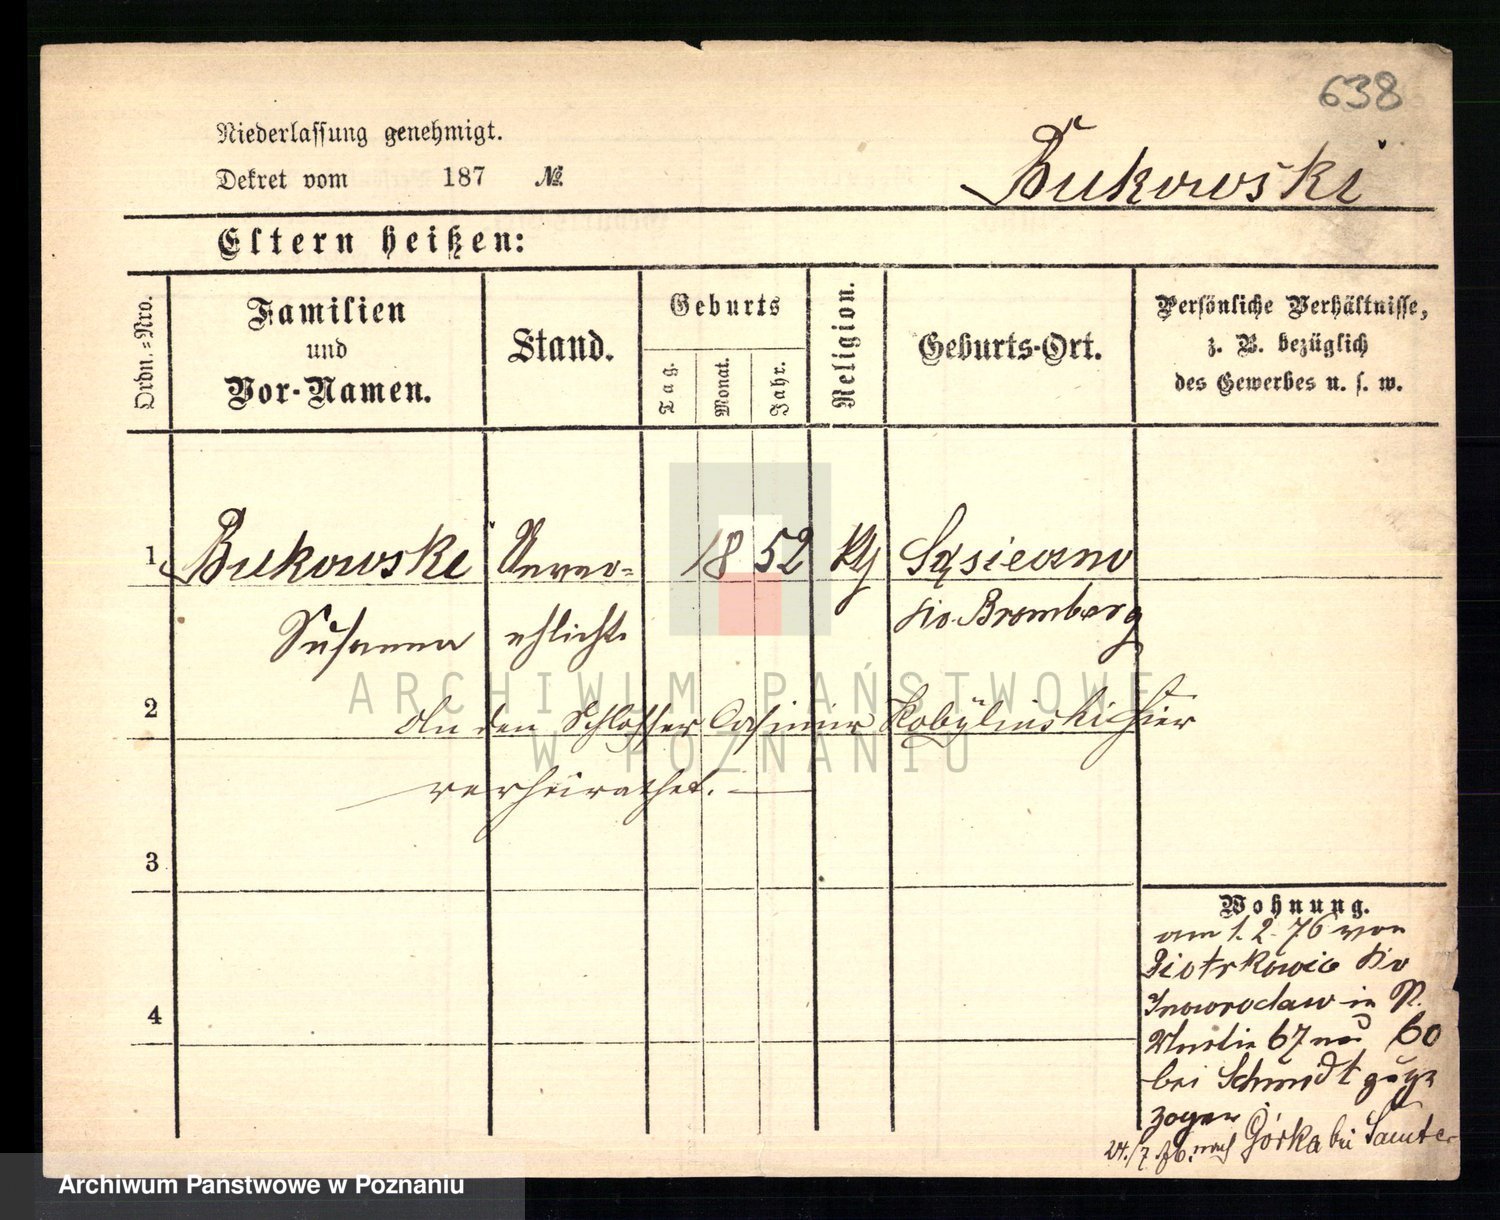 638
Niederlassung genehmigt.
Dekret vom 187 №.
Bukowski
Eltern heißen:
Ordn.-Nro.
Familien
und
Vor-Namen.
Stand.
Geburts
Tag.
Monat.
Jahr.
Religion.
Geburts-Ort.
Persönliche Verhältnisse,
z. B. bezüglich
des Gewerbes u. s. w.
1 Bukowski Unver= 18 52 Sąsieczno
Susanna ehlicht Bromberg
2
An den Schlosser Casimir Kobylinski hier
verheirathet.
3
Wohnung.
am 1.2.76 von
Piotrkowic
Inowroclaw in
67 60
bei Schmidt
zogen
4
24./7.76. nach Górka bei Samter
ARCHIWUM PAŃSTWOWE
W POZNANIU
Archiwum Państwowe w Poznaniu